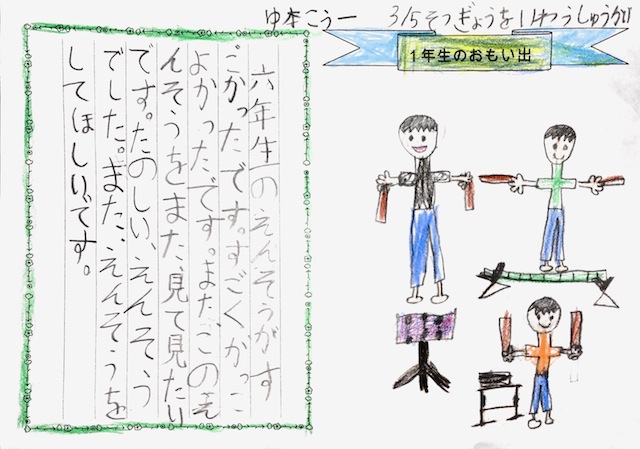 ゆ本こうー
3/5そつぎょうをいわうしゅうかい
1年生のおもい出
六年生のえんそうがす
ごかったです。すごくかっこ
よかったです。また、このえ
んそうをまた、見て見たい
です。たのしい、えんそう
でした。また、えんそうを
してほしいです。